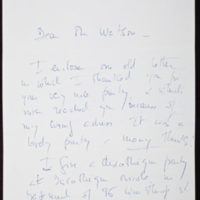 Dear Mr Watson
I enclose one old letter
in which I thanked you for
your very nice party, which
never reached you because of
my wrong address. It was a
lovely party - many thanks
I give a discotheque party
at
basement of 96